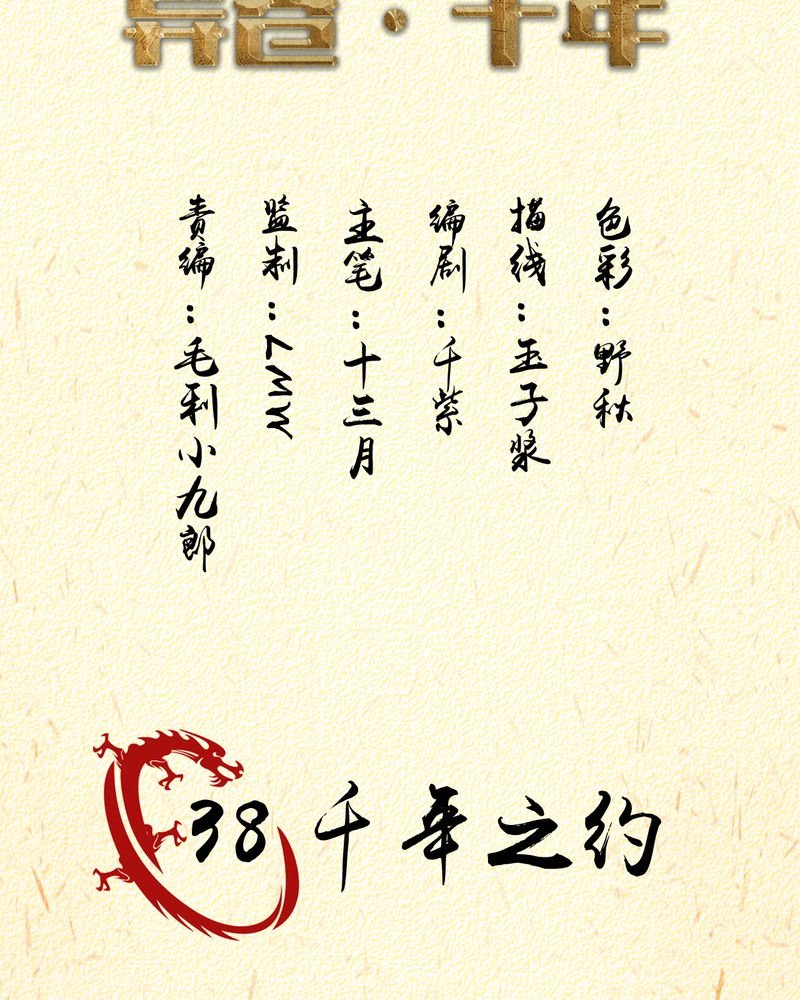 ·千年
色彩：野秋
描线：玉子浆
编剧：千紫
主笔：十三月
监制：ZMW
责编：毛利小九郎
38 千年之约